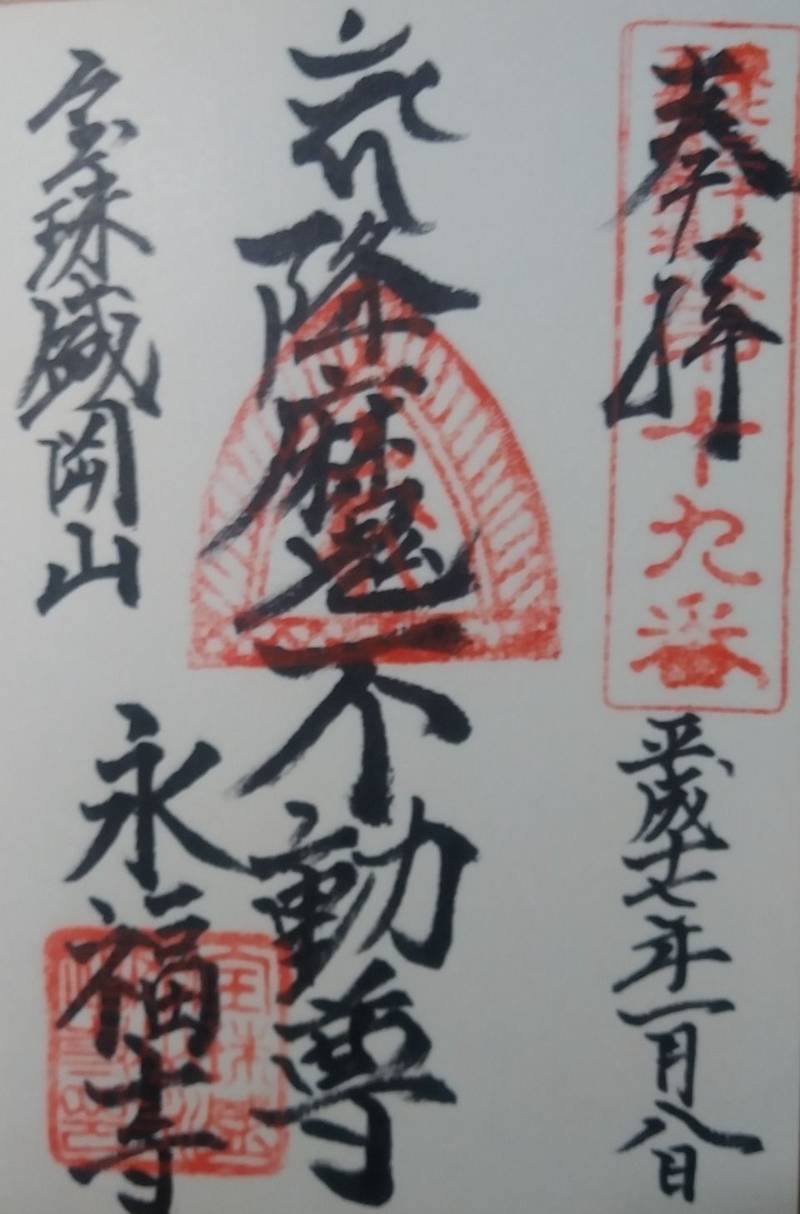 奉拝
十九番
平成十七年一月八日
降魔不動尊
宝珠盛岡山
永福寺